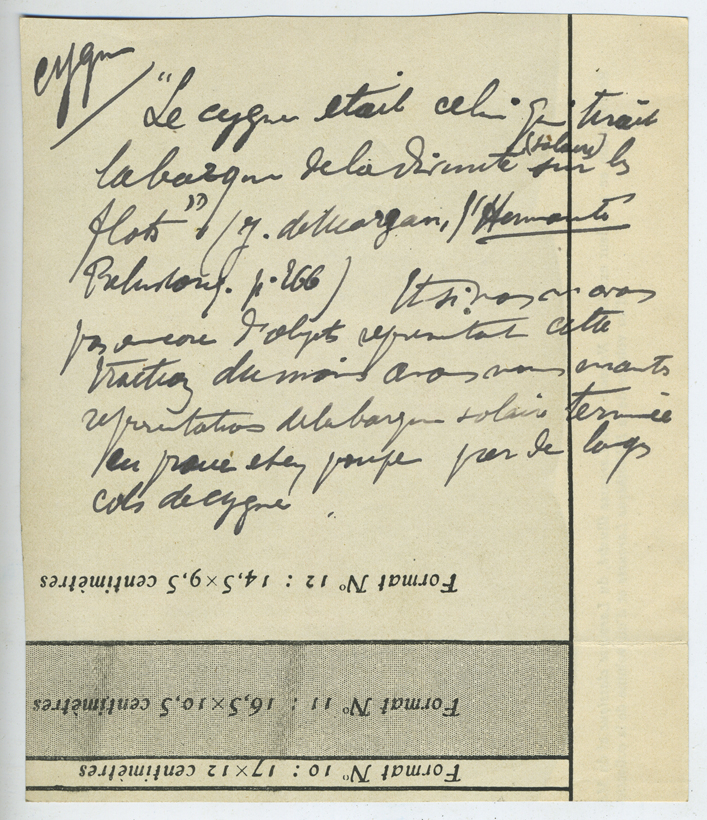 cygne
"Le cygne etait celui qui tirait
(solaire)
la barque de la divinité sur les
flots" (J. de Morgan, l'Humanité
Prehistoriq. p. 266) Et si nous n'avons
pas encore d'objets representant cette
traction du moins avons nous maintes
representations de la barque solaire terminée
en proue et en poupe par de longs
cols de cygne.
Format Nº 12 : 14,5×9,5 centimètres
Format Nº 11 : 16,5×10,5 centimètres
Format Nº 10 : 17×12 centimètres